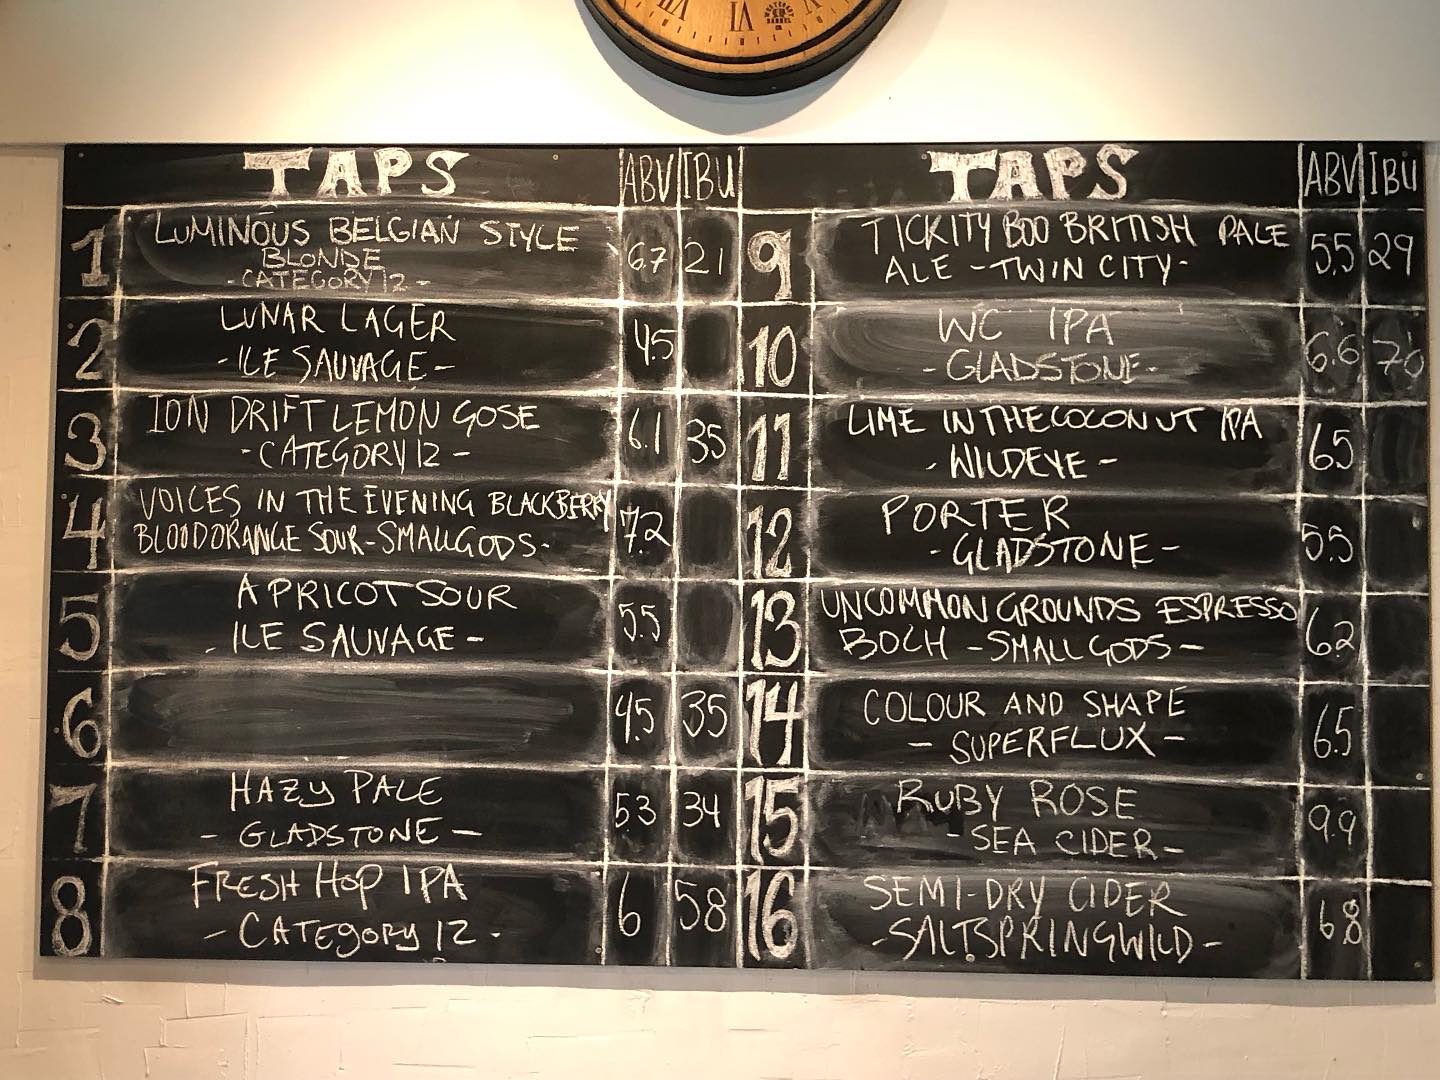 TAPS ABV IBU
1 LUMINOUS BELGIAN STYLE
BLONDE
- CATEGORY 12 - 6.7 21
2 LUNAR LAGER
- ILE SAUVAGE - 4.5
3 ION DRIFT LEMON GOSE
- CATEGORY 12 - 6.1 35
4 VOICES IN THE EVENING BLACKBERRY
BLOOD ORANGE SOUR - SMALL GODS - 7.2
5 APRICOT SOUR
- ILE SAUVAGE - 5.5
6 4.5 35
7 HAZY PALE
- GLADSTONE - 5.3 34
8 FRESH HOP IPA
- CATEGORY 12 - 6 58
TAPS ABV IBU
9 TICKITY BOO BRITISH PALE
ALE - TWIN CITY - 5.5 29
10 WC IPA
- GLADSTONE - 6.6 70
11 LIME IN THE COCONUT IPA
- WILDEYE - 6.5
12 PORTER
- GLADSTONE - 5.5
13 UNCOMMON GROUNDS ESPRESSO
BOCH - SMALL GODS - 6.2
14 COLOUR AND SHAPE
- SUPERFLUX - 6.5
15 RUBY ROSE
- SEA CIDER - 9.9
16 SEMI-DRY CIDER
- SALTSPRINGWILD - 6.8